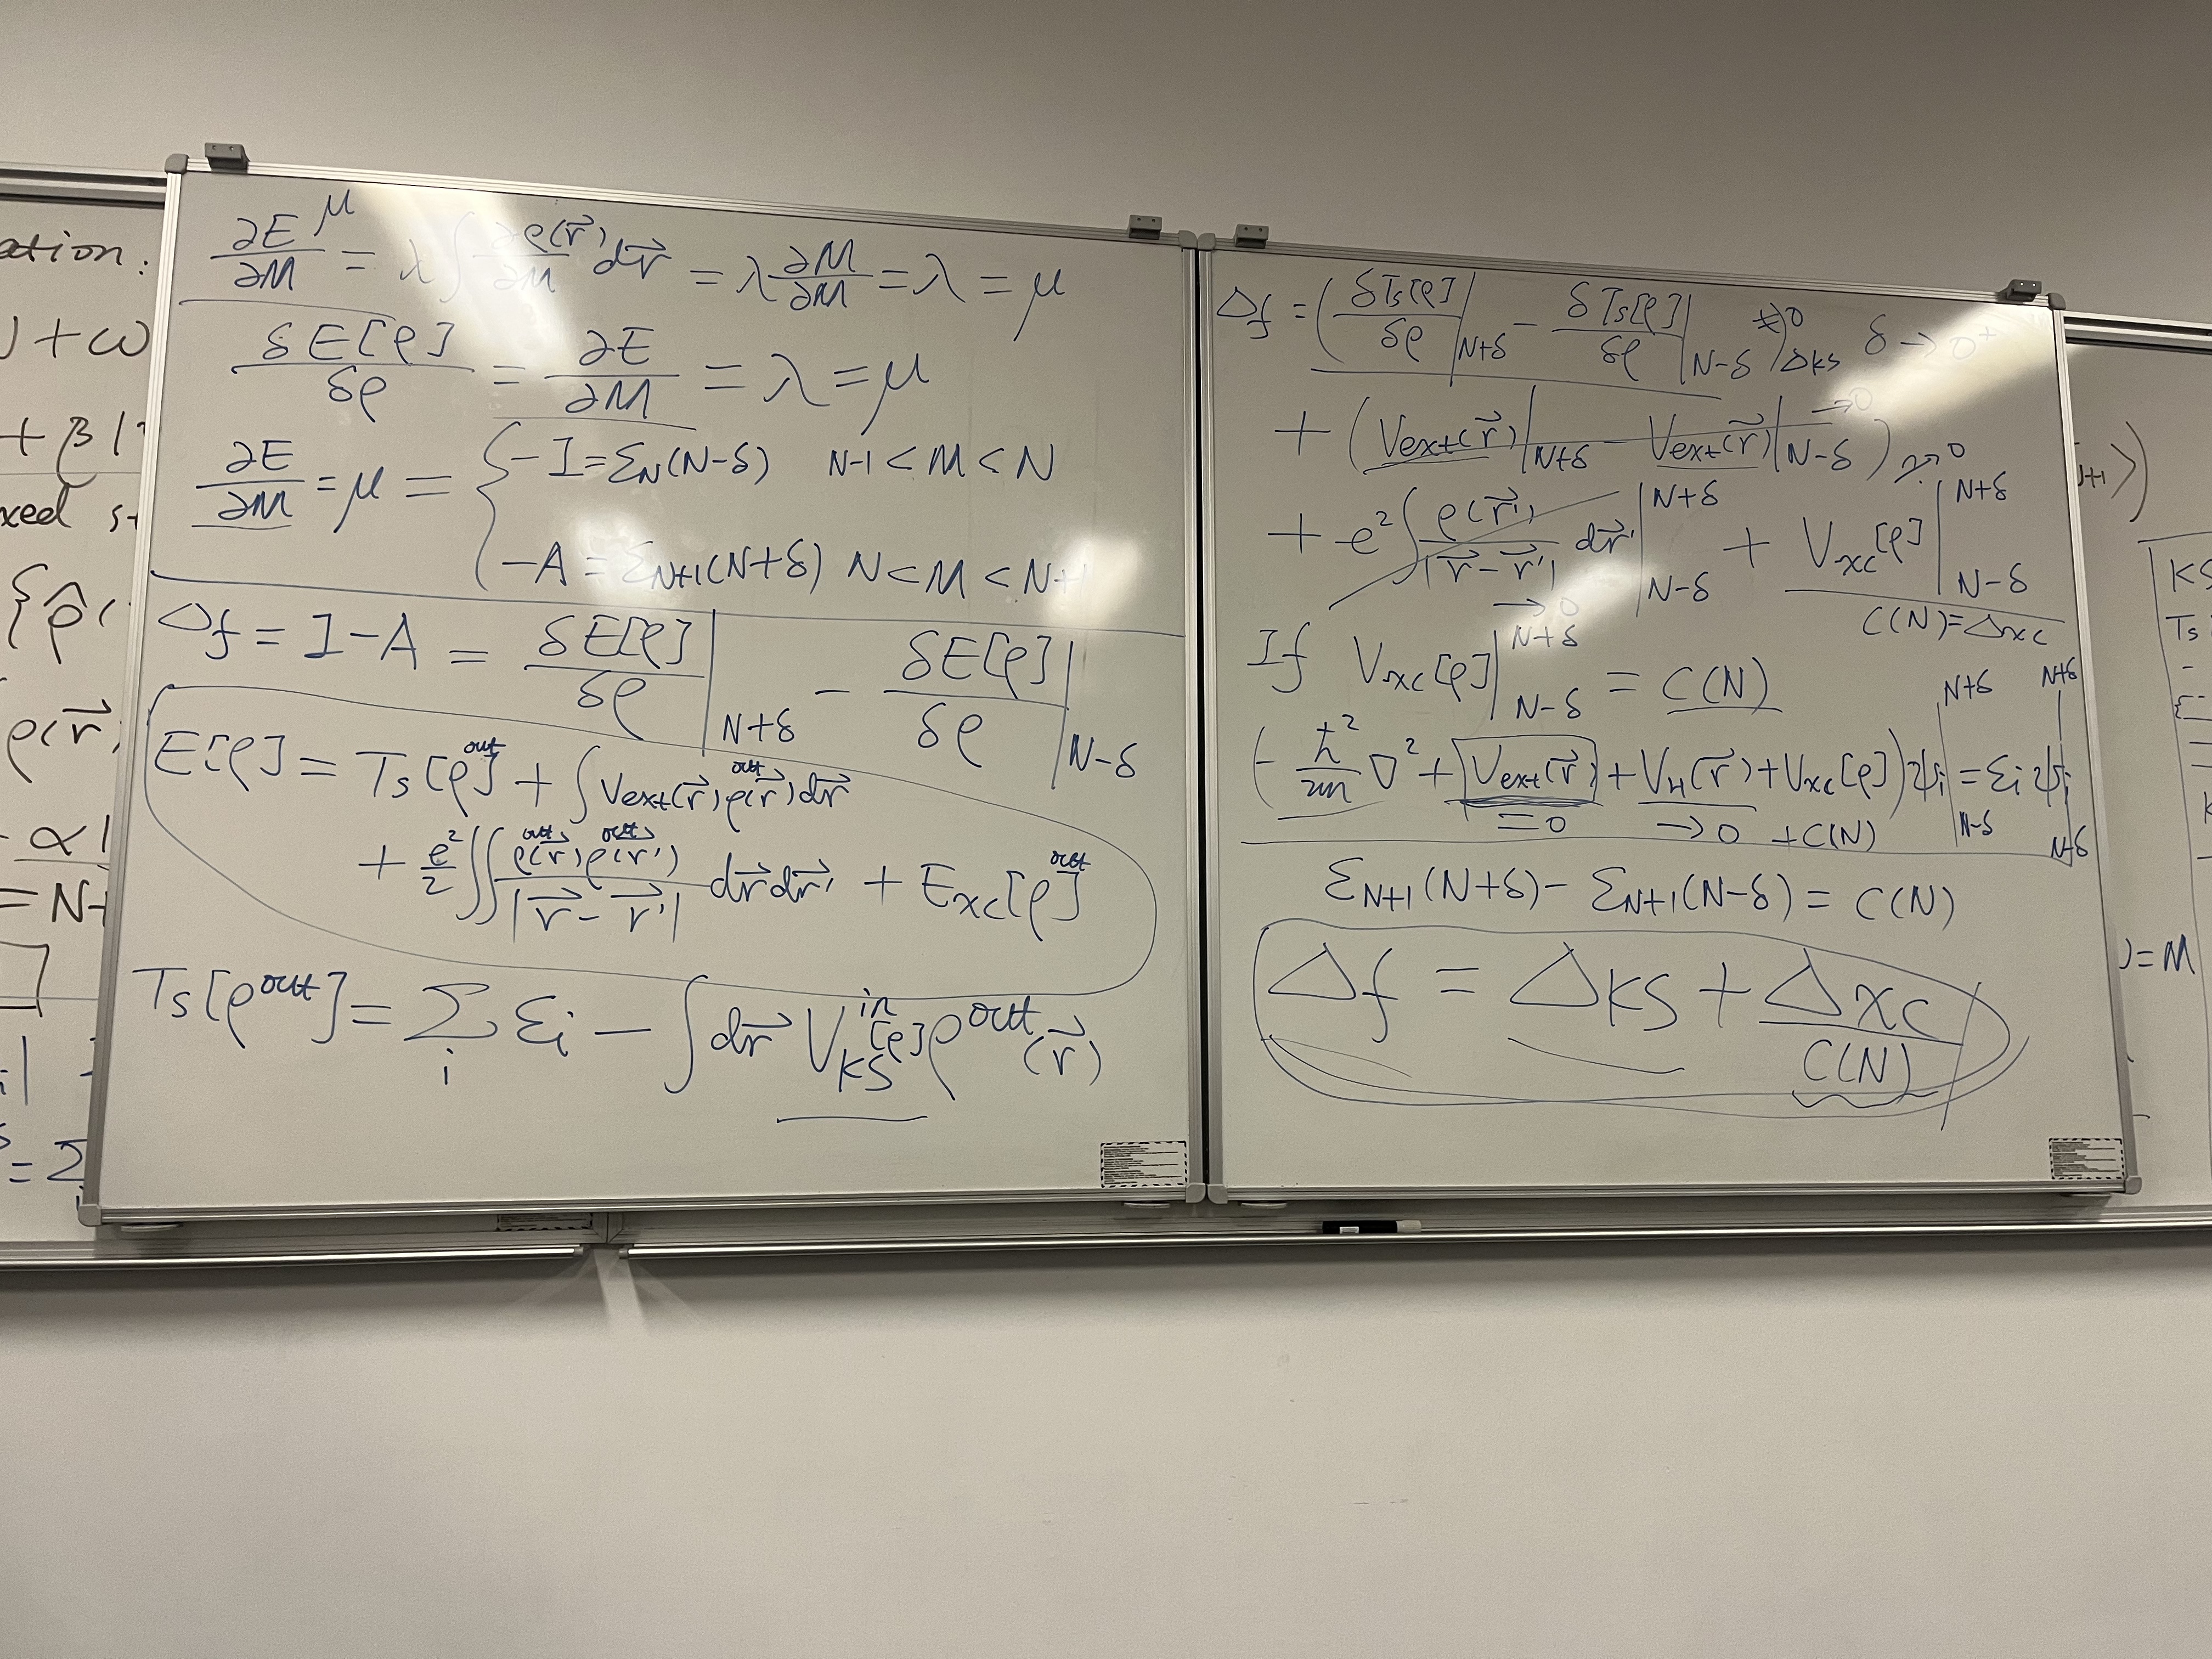 ation:
∂E/∂M = λ∫ ∂ρ(r⃗)/∂M dr⃗ = λ ∂M/∂M = λ = μ
μ
δE[ρ]/δρ = ∂E/∂M = λ = μ
∂E/∂M = μ = { -I = ε_N(N-δ) N-1 < M < N
-A = ε_N+1(N+δ) N < M < N+1
Δf = I - A = δE[ρ]/δρ |_N+δ - δE[ρ]/δρ |_N-δ
E[ρ] = Ts[ρ^out] + ∫ Vext(r⃗) ρ^out(r⃗) dr⃗
+ e²/2 ∬ ρ^out(r⃗) ρ^out(r⃗') / |r⃗ - r⃗'| dr⃗ dr⃗' + Exc[ρ^out]
Ts[ρ^out] = Σ_i εi - ∫ dr⃗ V_KS^in[ρ] ρ^out(r⃗)
Δf = ( δTs[ρ]/δρ |_N+δ - δTs[ρ]/δρ |_N-δ ) ≠0 ΔKS δ → 0⁺
+ ( Vext(r⃗)|_N+δ - Vext(r⃗)|_N-δ ) → 0
+ e² ∫ ρ(r⃗') / |r⃗ - r⃗'| dr⃗' |_N-δ^N+δ + Vxc[ρ] |_N-δ^N+δ
→ 0 C(N) = Δxc
If Vxc[ρ] |_N-δ^N+δ = C(N)
( - ħ²/2m ∇² + Vext(r⃗) + V_H(r⃗) + Vxc[ρ] ) ψi |_N-δ^N+δ = εi ψi |_N-δ^N+δ
= 0 → 0 + C(N)
ε_N+1(N+δ) - ε_N+1(N-δ) = C(N)
Δf = ΔKS + Δxc
C(N)